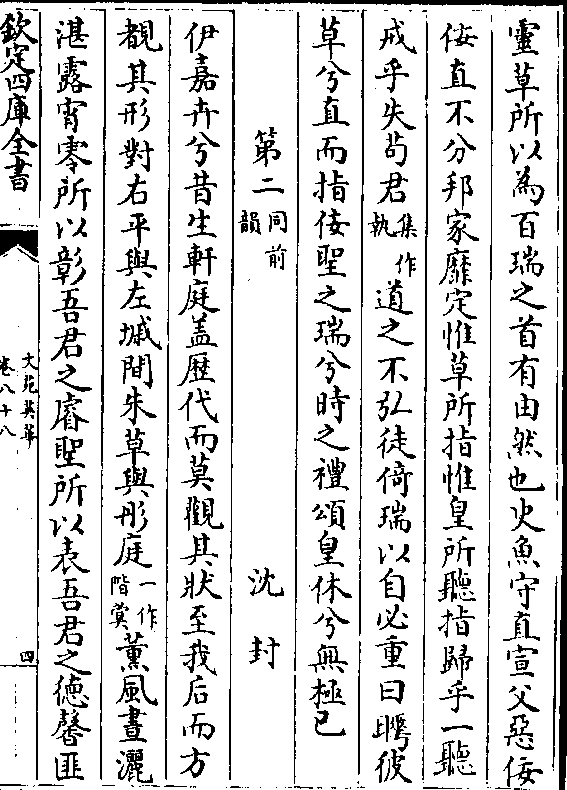 靈草所以為百瑞之首有由然也史魚守直宣父惡佞
佞直不分邦家靡定惟草所指惟皇所聽指歸乎一聽
戒乎失苟君集作執道之不弘徒倚瑞以自必重曰瞩彼
草兮直而指佞聖之瑞兮時之禮頌皇休兮無極已
第二同前韻 沈封
伊嘉卉兮昔生軒庭盖歴代而莫觀其狀至我后而方
覩其形對右平與左墄間朱草與彤庭一作階蓂薰風晝灑
湛露宵零所以彰吾君之睿聖所以表吾君之徳馨匪
欽定四庫全書
文苑英華
卷八十八
四